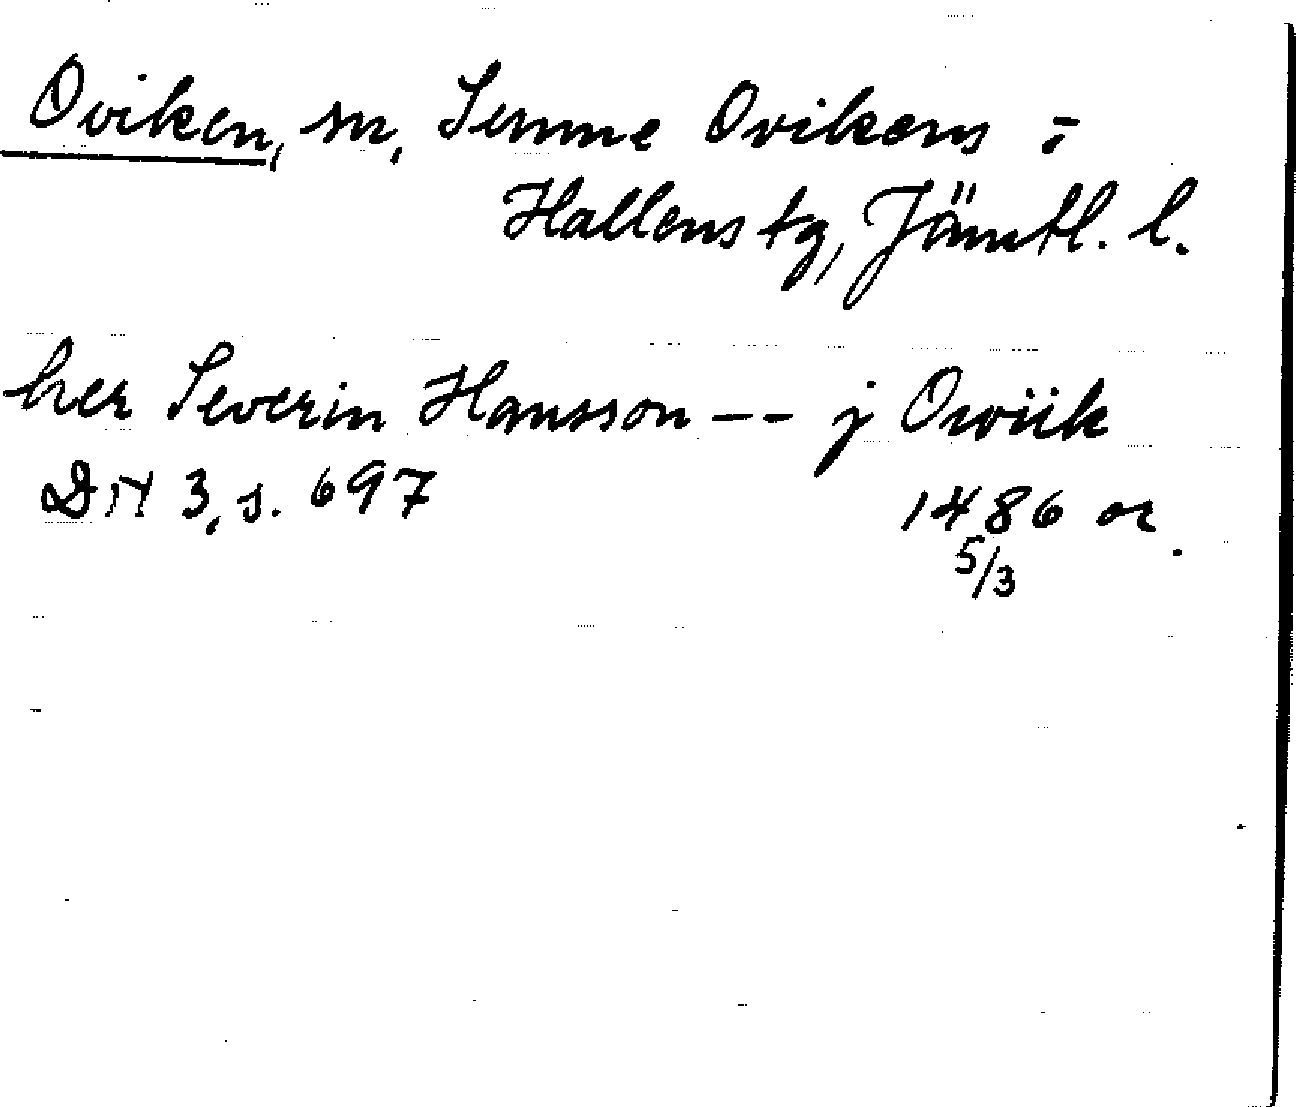 Oviken, sn, Sunne Ovikens o
Hallens tg, Jämtl. l.
her Severin Hansson -- j Owiik
DN 3, s. 697 1486 or.
5/3